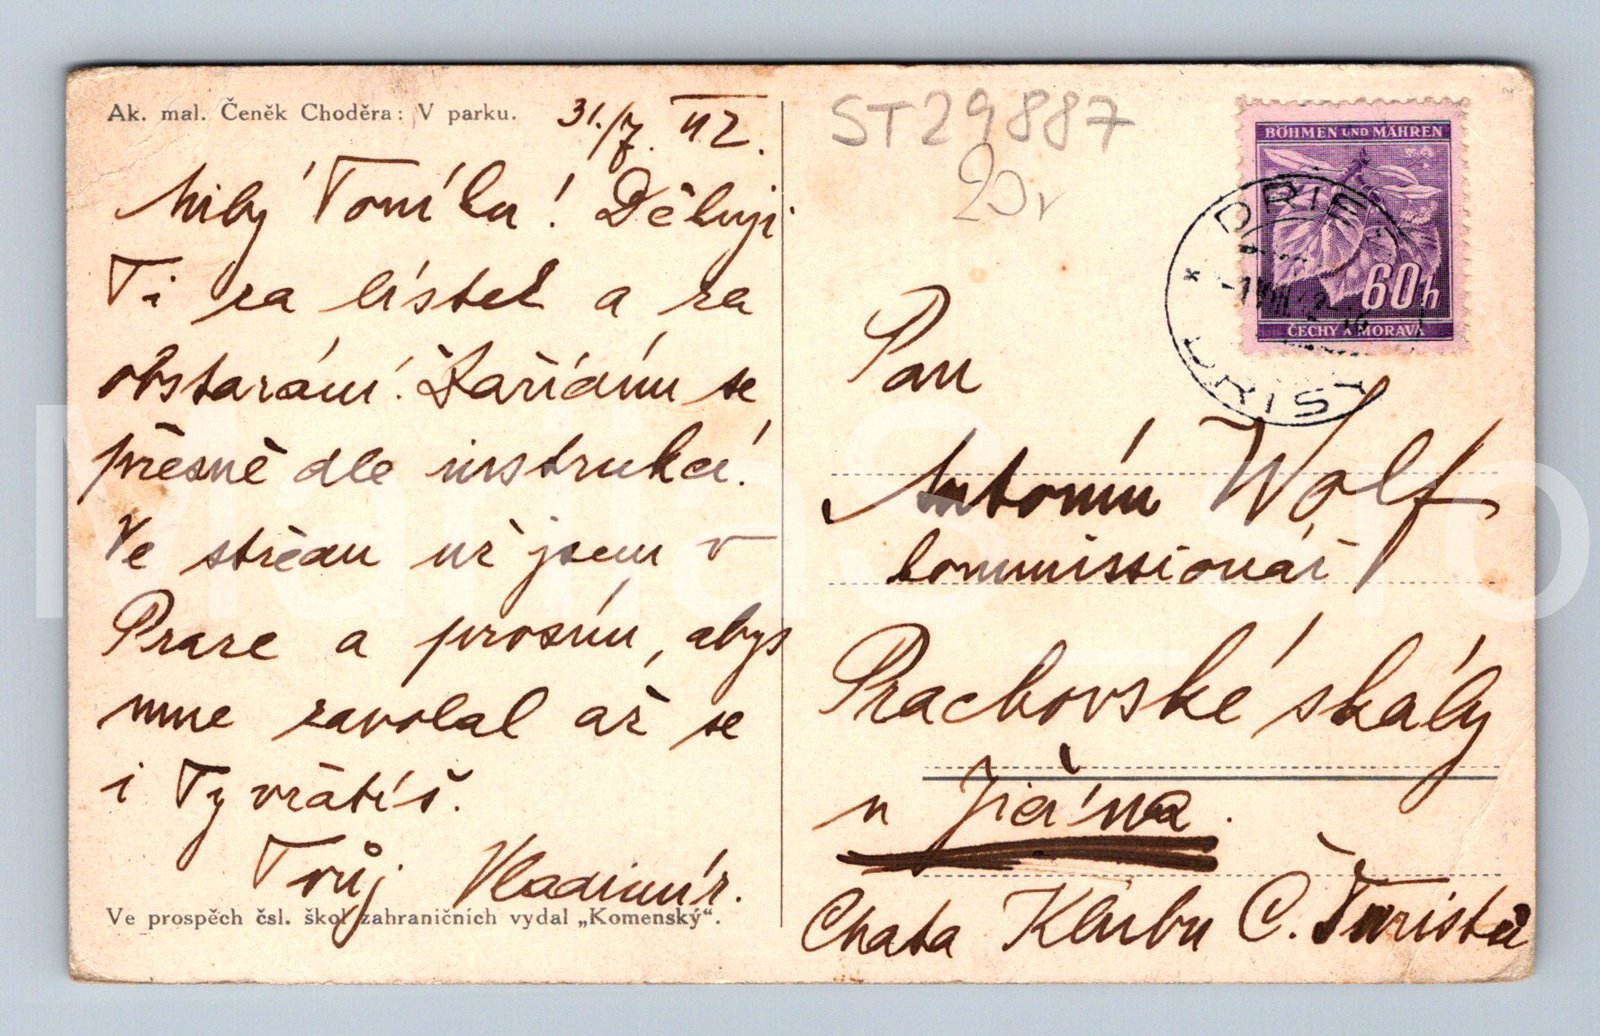 Ak. mal. Čeněk Choděra: V parku.
31./7. 42.
Milý Toníku! Děkuji
Ti za lístek a za
obstarání. Zařídím se
přesně dle instrukcí.
Ve středu už jsem v
Praze a prosím, abys
mne zavolal až se
i Ty vrátíš.
Tvůj Vladimír.
Ve prospěch čsl. škol zahraničních vydal „Komenský“.
ST29887
20,-
BÖHMEN UND MÄHREN
60h
ČECHY A MORAVA
Pan
Antonín Wolf
kommissionář
Prachovské skály
u Jičína.
Chata Klubu Č. Turistů